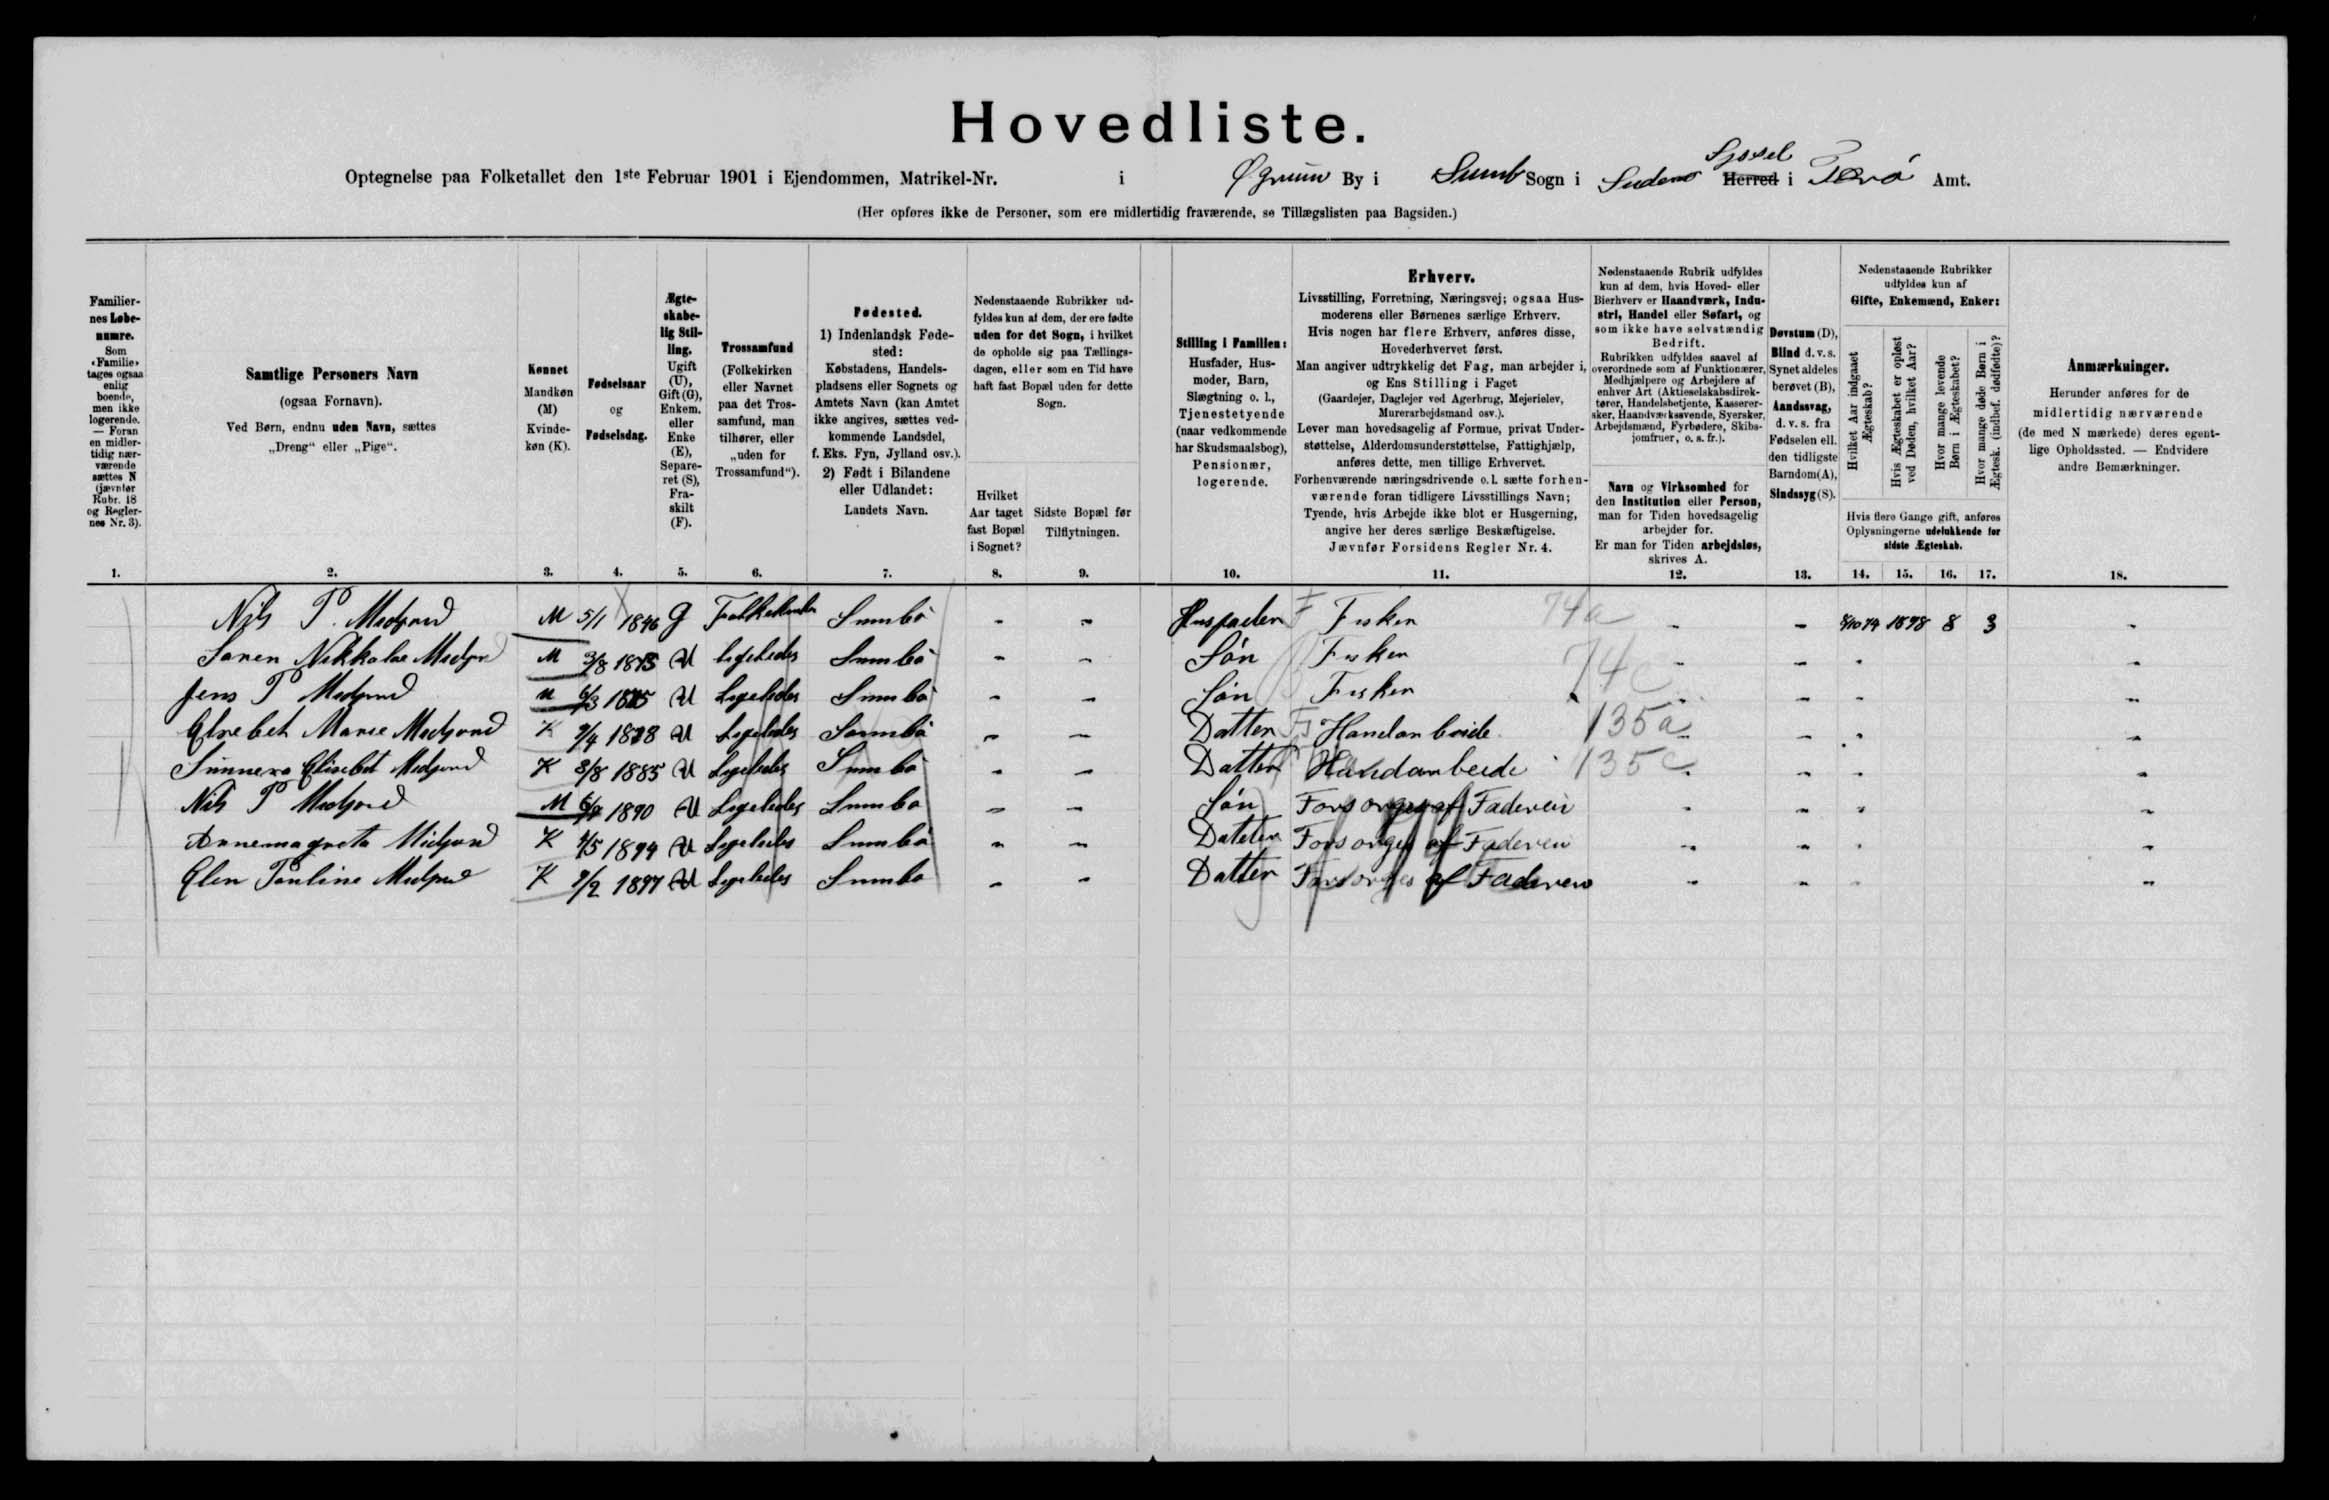 Hovedliste.
Syssel
Optegnelse paa Folketallet den 1ste Februar 1901 i Ejendommen, Matrikel-Nr. i Øgrum By i Sumb Sogn i Suderø Herred i Færø Amt.
(Her opføres ikke de Personer, som ere midlertidig fraværende, se Tillægslisten paa Bagsiden.)
Familiernes Løbenumre. Som «Familie» tages ogsaa enlig boende, men ikke logerende. — Foran en midlertidig nærværende sættes N (jævnfør Rubr. 18 og Reglernes Nr. 3).
Samtlige Personers Navn (ogsaa Fornavn). Ved Børn, endnu uden Navn, sættes „Dreng“ eller „Pige“.
Kønnet Mandkøn (M) Kvindekøn (K).
Fødselsaar og Fødselsdag.
Ægteskabelig Stilling. Ugift (U), Gift (G), Enkem. eller Enke (E), Separeret (S), Fraskilt (F).
Trossamfund (Folkekirken eller Navnet paa det Trossamfund, man tilhører, eller „uden for Trossamfund“).
Fødested. 1) Indenlandsk Fødested: Købstadens, Handelspladsens eller Sognets og Amtets Navn (kan Amtet ikke angives, sættes vedkommende Landsdel, f. Eks. Fyn, Jylland osv.). 2) Født i Bilandene eller Udlandet: Landets Navn.
Nedenstaaende Rubrikker udfyldes kun af dem, der ere fødte uden for det Sogn, i hvilket de opholde sig paa Tællingsdagen, eller som en Tid have haft fast Bopæl uden for dette Sogn.
Hvilket Aar taget fast Bopæl i Sognet?
Sidste Bopæl før Tilflytningen.
Stilling i Familien: Husfader, Husmoder, Barn, Slægtning o. l., Tjenestetyende (naar vedkommende har Skudsmaalsbog), Pensionær, logerende.
Erhverv. Livsstilling, Forretning, Næringsvej; ogsaa Husmoderens eller Børnenes særlige Erhverv. Hvis nogen har flere Erhverv, anføres disse, Hovederhvervet først. Man angiver udtrykkelig det Fag, man arbejder i, og Ens Stilling i Faget (Gaardejer, Daglejer ved Agerbrug, Mejerielev, Murerarbejdsmand osv.). Lever man hovedsagelig af Formue, privat Understøttelse, Alderdomsunderstøttelse, Fattighjælp, anføres dette, men tillige Erhvervet. Forhenværende næringsdrivende o. l. sætte forhenværende foran tidligere Livsstillings Navn; Tyende, hvis Arbejde ikke blot er Husgerning, angive her deres særlige Beskæftigelse. Jævnfør Forsidens Regler Nr. 4.
Nedenstaaende Rubrik udfyldes kun af dem, hvis Hoved- eller Bierhverv er Haandværk, Industri, Handel eller Søfart, og som ikke have selvstændig Bedrift. Rubrikken udfyldes saavel af overordnede som af Funktionærer, Medhjælpere og Arbejdere af enhver Art (Aktieselskabsdirektører, Handelsbetjente, Kasserersker, Haandværkssvende, Syersker, Arbejdsmænd, Fyrbødere, Skibsjomfruer, o. s. fr.).
Navn og Virksomhed for den Institution eller Person, man for Tiden hovedsagelig arbejder for. Er man for Tiden arbejdsløs, skrives A.
Døvstum (D), Blind d. v. s. Synet aldeles berøvet (B), Aandssvag, d. v. s. fra Fødselen ell. den tidligste Barndom (A), Sindssyg (S).
Nedenstaaende Rubrikker udfyldes kun af Gifte, Enkemænd, Enker:
Hvilket Aar indgaaet Ægteskab?
Hvis Ægteskabet er opløst ved Døden, hvilket Aar?
Hvor mange levende Børn i Ægteskabet?
Hvor mange døde Børn i Ægtesk. (indbef. dødfødte)?
Hvis flere Gange gift, anføres Oplysningerne udelukkende for sidste Ægteskab.
Anmærkninger. Herunder anføres for de midlertidig nærværende (de med N mærkede) deres egentlige Opholdssted. — Endvidere andre Bemærkninger.
1. 2. 3. 4. 5. 6. 7. 8. 9. 10. 11. 12. 13. 14. 15. 16. 17. 18.
Nils P. Midjord M 5/1 1846 G Folkekirken Sumbö - - Husfader Fisker 74a - - 1898 8 3 -
Sören Nikkolae Midjord M 3/8 1875 U Ligeledes Sumbö - - Sön Fisker 74c - - - -
Jens P Midjord M 6/3 U Ligeledes Sumbö - - Sön Fisker - - - -
Elsebet Marie Midjord K 9/4 1878 U Ligeledes Sumbö - - Datter Handarbeide 135a - - - -
Sunneva Elisebet Midjord K 3/8 1885 U Ligeledes Sumbö - - Datter Handarbeide 135c - - - -
Nils P Midjord M 1890 U Ligeledes Sumbö - - Sön Forsorges af Faderen - - - -
Annemagreta Midjord K 4/5 1894 U Ligeledes Sumbö - - Datter Forsorges af Faderen - - - -
Elen Pauline Midjord K 9/2 1897 U Ligeledes Sumbö - - Datter Forsorges af Faderen - - - -